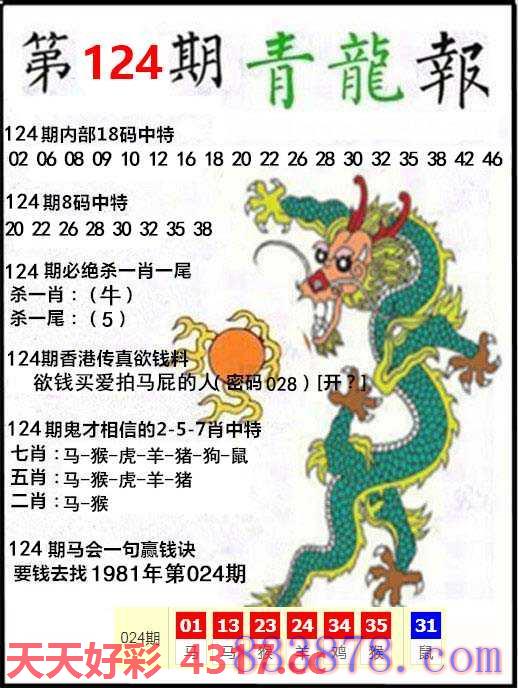 第124期青龍報
124期内部18码中特
02 06 08 09 10 12 16 18 20 22 26 28 30 32 35 38 42 46
124期8码中特
20 22 26 28 30 32 35 38
124期必绝杀一肖一尾
杀一肖：（牛）
杀一尾：（5）
124期香港传真欲钱料
欲钱买爱拍马屁的人(密码028)[开?]
124期鬼才相信的2-5-7肖中特
七肖：马-猴-虎-羊-猪-狗-鼠
五肖：马-猴-虎-羊-猪
二肖：马-猴
124期马会一句赢钱诀
要钱去找1981年第024期
024期 01 13 23 24 34 35 31
马 马 猴 羊 鸡 猴 鼠
天天好彩 4317.cc